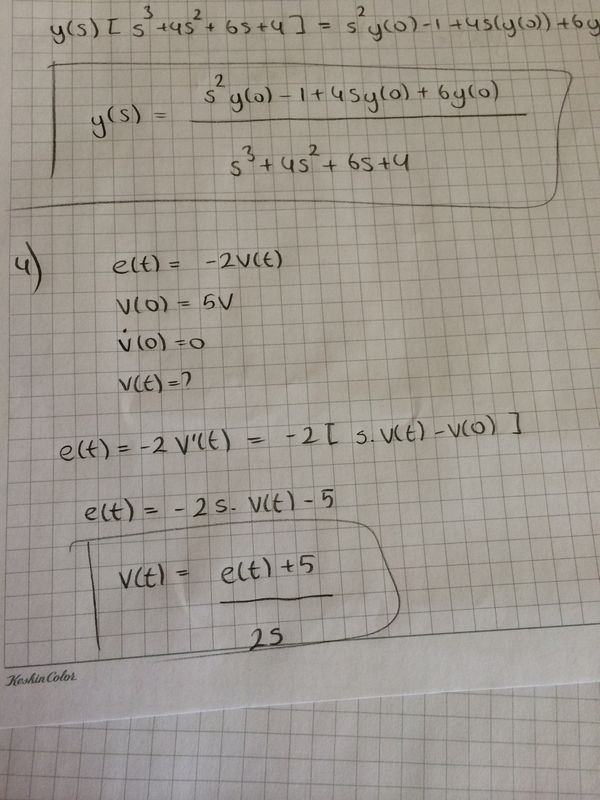 y(s) [ s³+4s²+ 6s+4 ] = s²y(0)-1+4s(y(0))+6y
y(s) = s²y(0)-1+4sy(0)+6y(0)
s³+4s²+6s+4
4) e(t) = -2v(t)
v(0) = 5V
v̇(0)=0
v(t)=?
e(t)=-2 v'(t) = -2 [ s.v(t)-v(0) ]
e(t) = -2s. v(t)-5
v(t) = e(t)+5
2s
KeskinColor